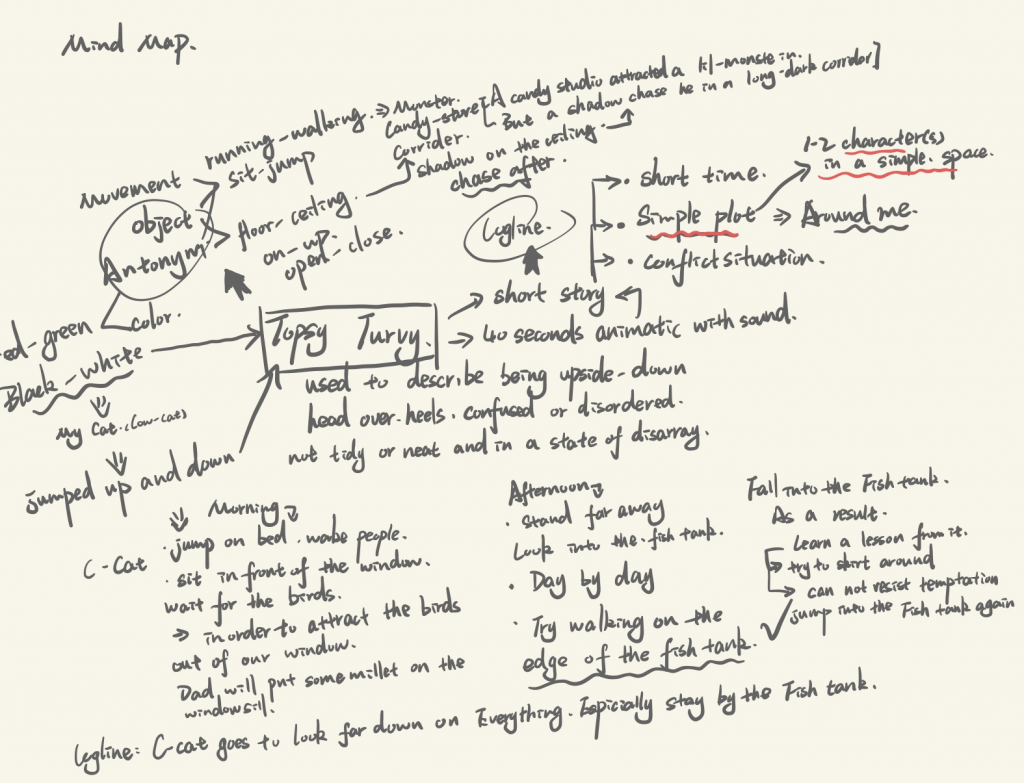 Mind Map.
running-walking. ⇒ Monster.
sit-jump
Candy-store
Corrider.
shadow on the ceiling.
chase after.
[A candy studio attracted a monste in.
But a shadow chase he in a long-dark corridor]
movement
object
Antonym
floor-ceiling.
on-up.
open-close.
color.
ed-green
Black-white
My Cat.
jumped up and down
Topsy Turvy.
used to describe being upside-down
head over-heels. confused or disordered.
not tidy or neat and in a state of disarray.
Logline.
short story
40 seconds animatic with sound.
• short time.
• Simple plot ⇒ Around me.
• conflict situation.
1-2 character(s)
in a simple. space.
C-Cat
Morning
• jump on bed. wake people.
• sit in front of the window.
wait for the birds.
→ in order to attract the birds
out of our window.
Dad will put some millet on the
windowsill.
Afternoon
• stand far away
Look into the fish tank.
• Day by day
• Try walking on the
edge of the fish tank.
Fall into the Fish tank.
As a result.
Learn a lesson from it.
→ try to start around
→ can not resist temptation
jump into the Fish tank again
Logline: C-cat goes to look far down on Everything. Espicially stay by the Fish tank.